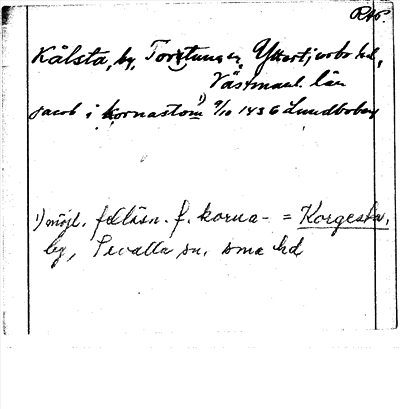 RAp.
Kålsta, by, Tortuna sn, Yttertjurbo hd,
Västmanl. län
Jacob i kornastom 1) 9/10 1436 Lundbobrev
1) möjl. felläsn. f. korna- = Korgesta,
by, Tevalla sn, sma hd